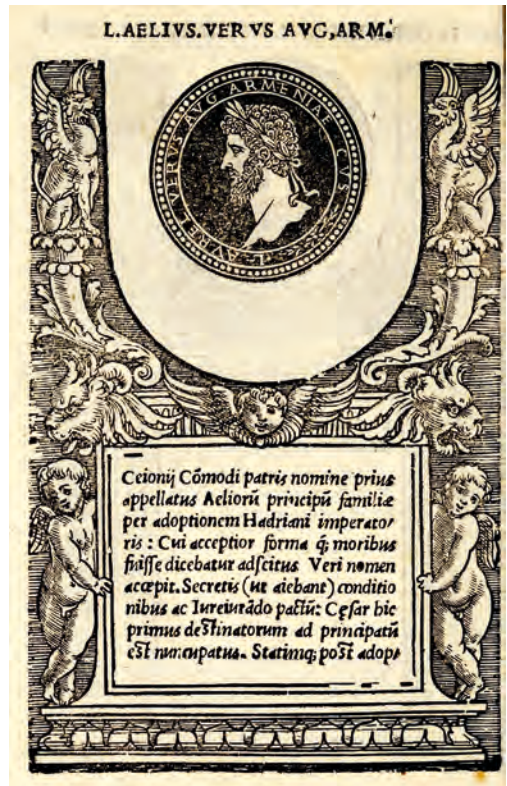 L. AELIVS. VERVS AVG, ARM.
L. AVREL VERVS AVG ARMENIAE CVS
Ceionij Cōmodi patris nomine prius
appellatus Aeliorū principū familiæ
per adoptionem Hadriani imperator
ris : Cui acceptior forma q; moribus
fuisse dicebatur adscitus Veri nomen
accepit. Secretis (ut aiebant) conditio
nibus ac Iureiurādo pactū: Cęsar hic
primus destinatorum ad principatū
est nuncupatus. Statimq; post adopt